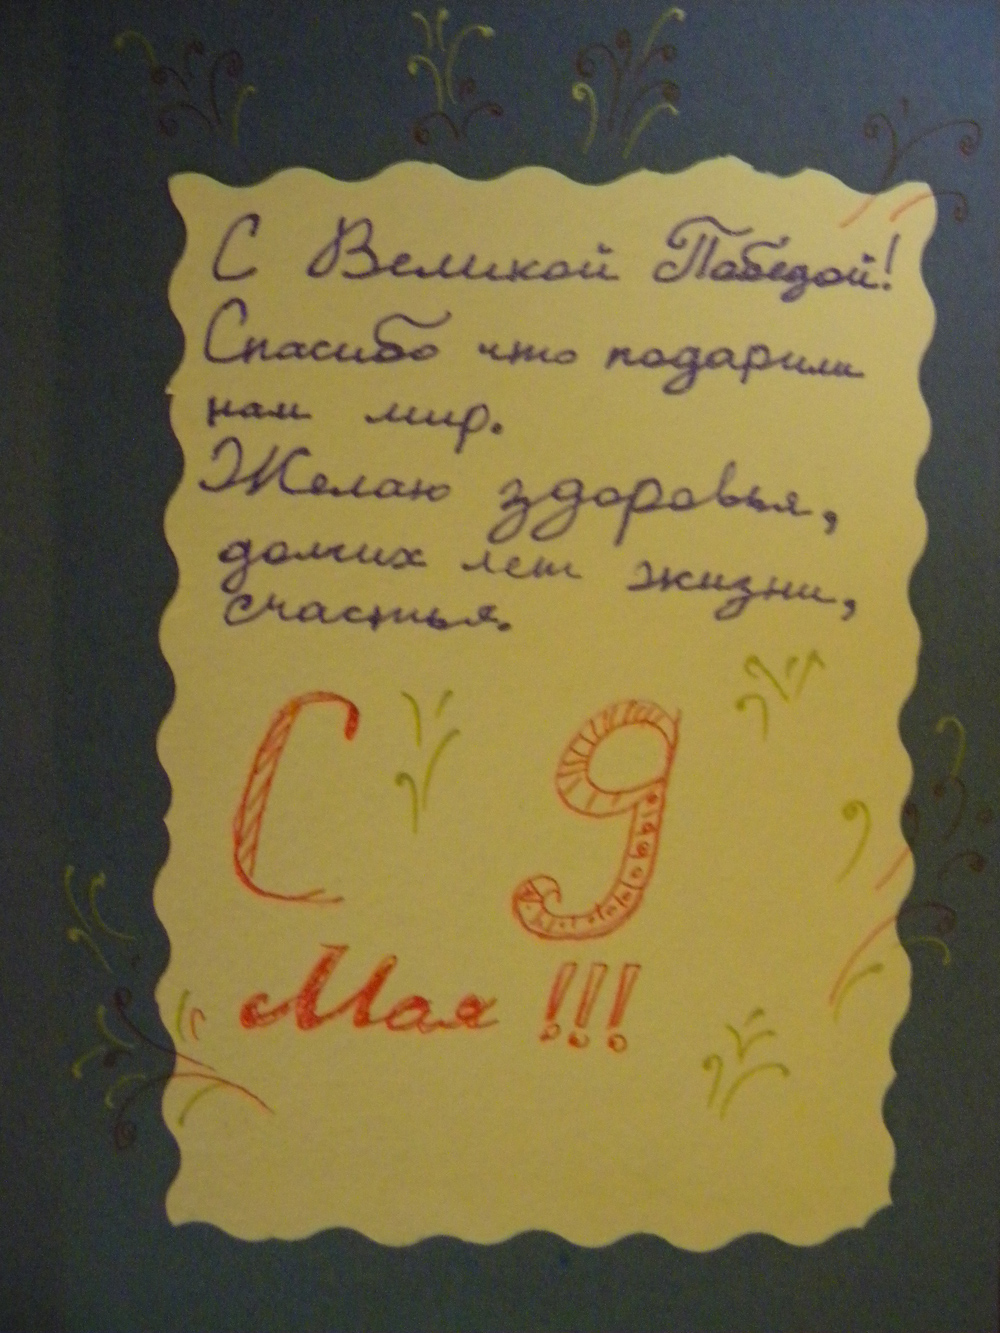 С Великой Победой!
Спасибо что подарили
нам мир.
Желаю здоровья,
долгих лет жизни,
счастья.
С 9
Мая!!!